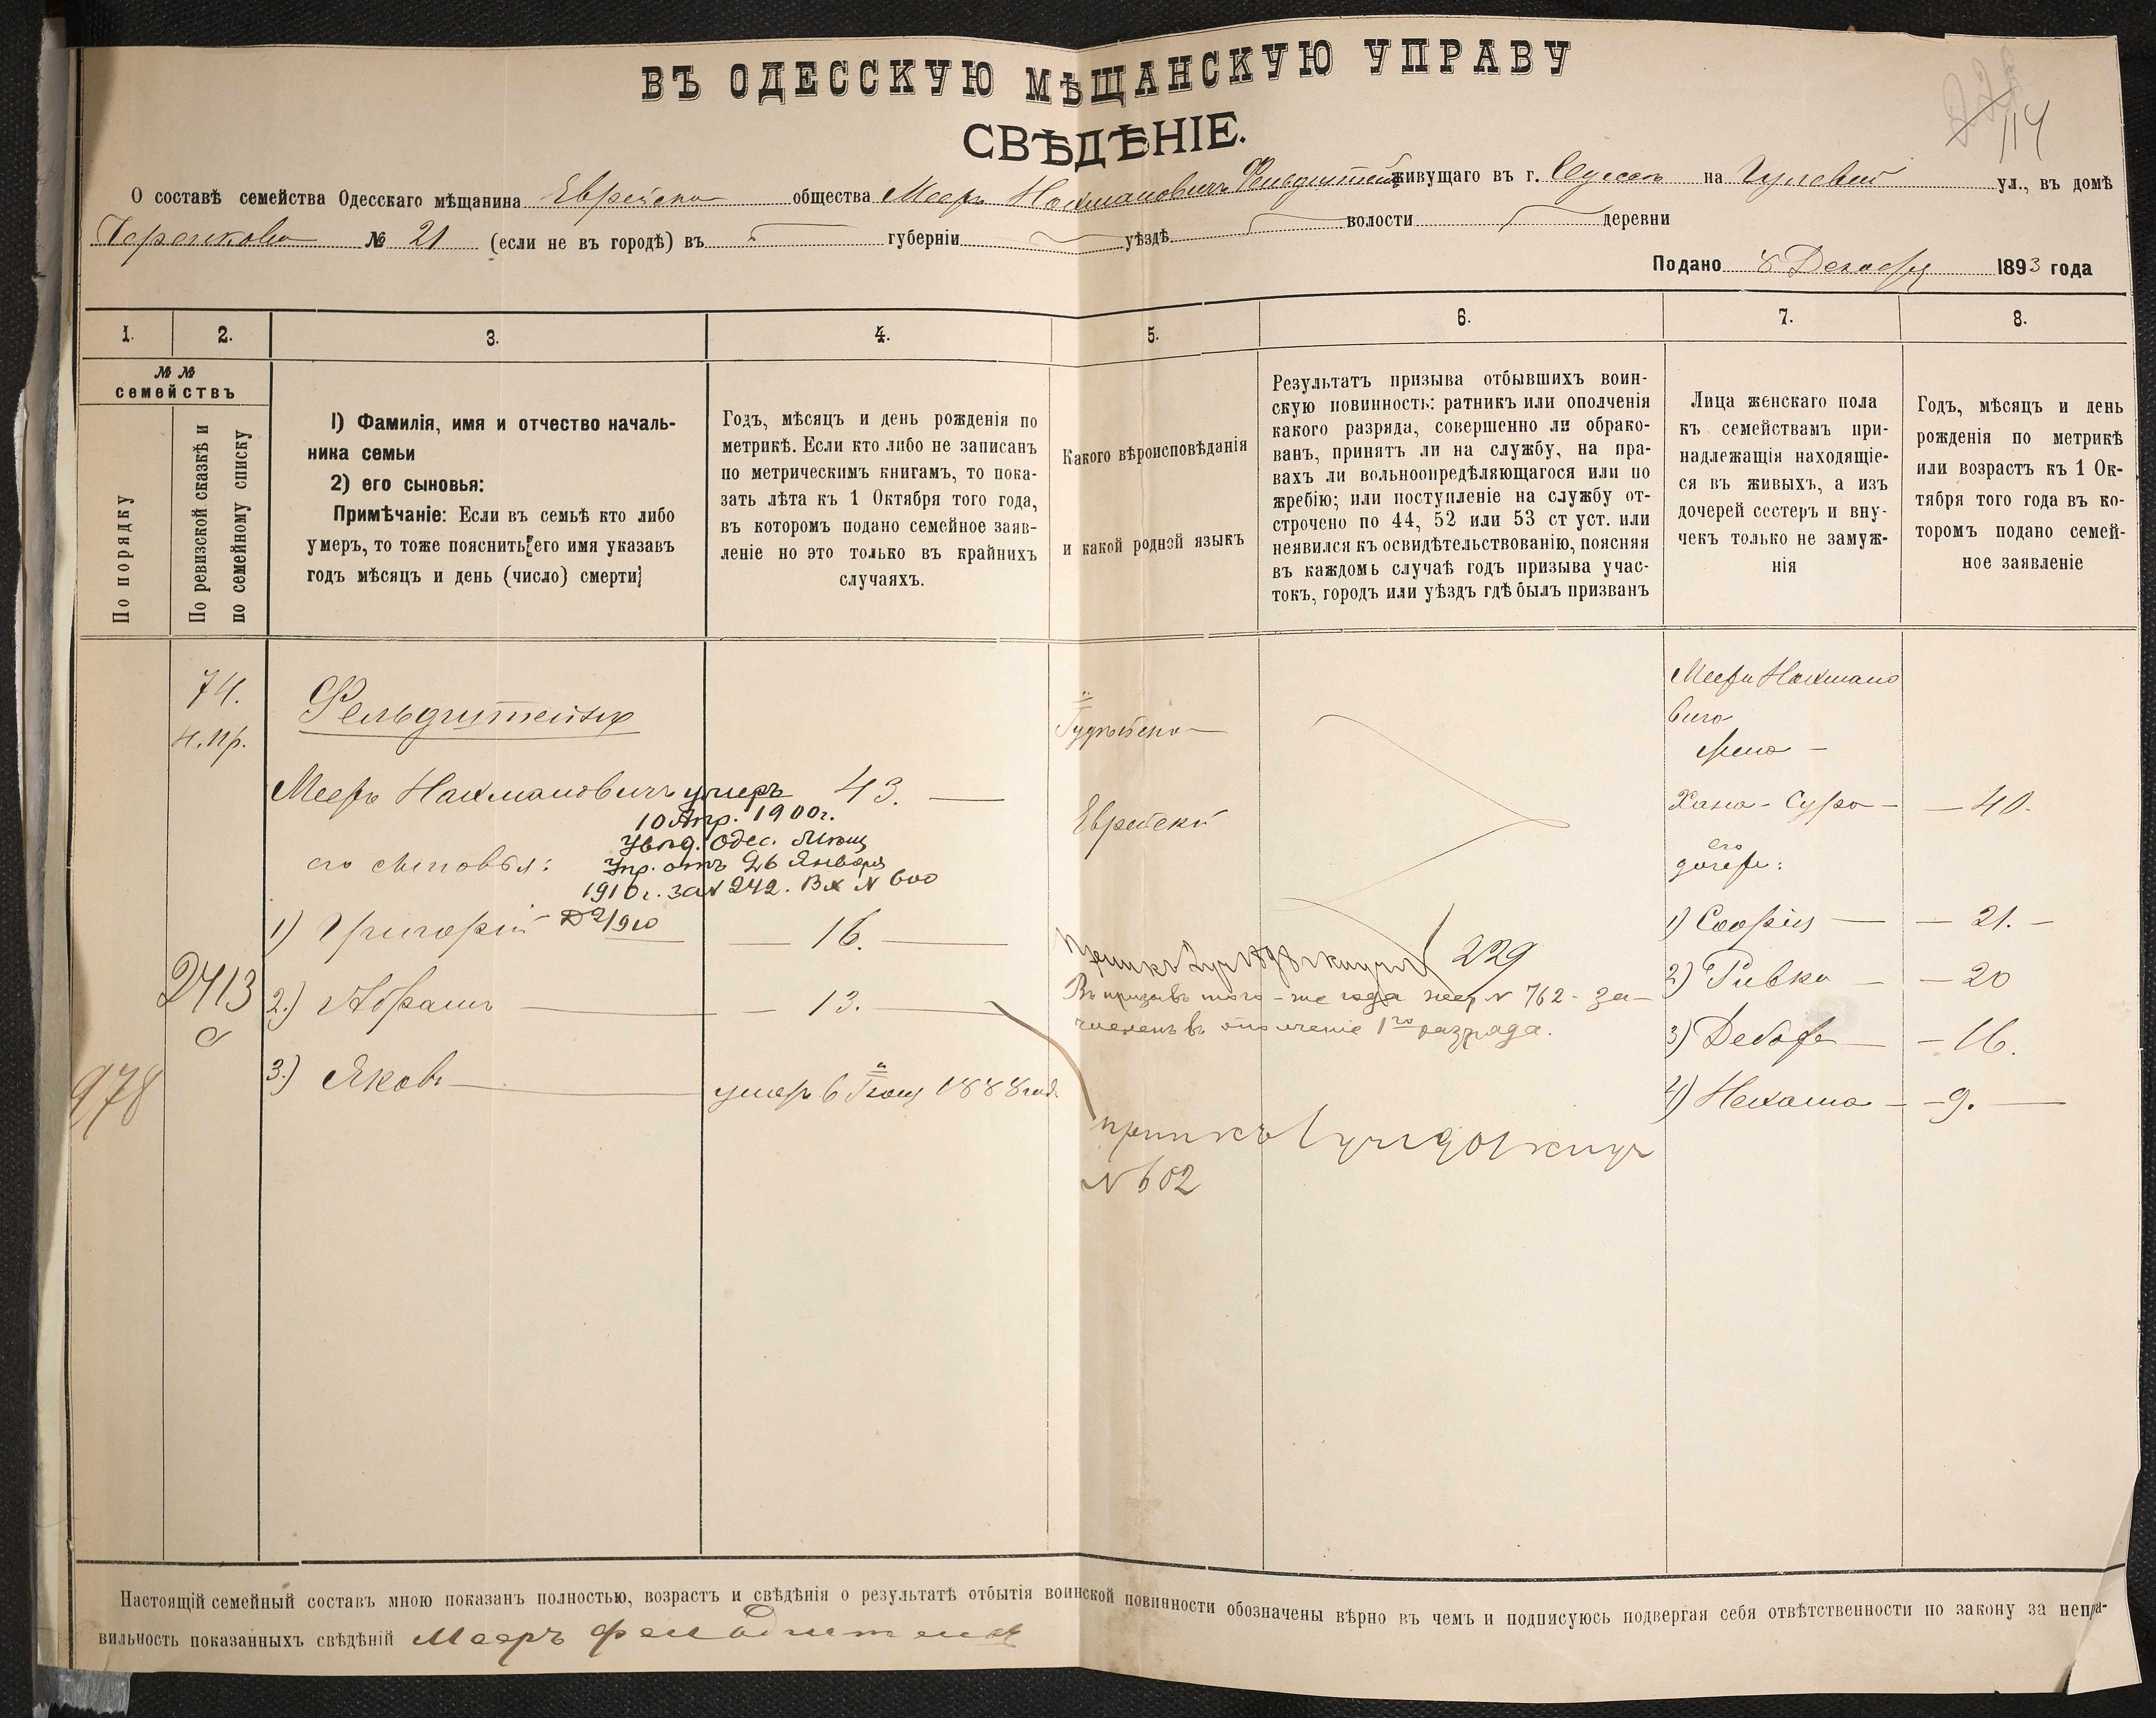 114
ВЪ ОДЕССКУЮ МѢЩАНСКУЮ УПРАВУ
СВѢДѢНІЕ.
О составѣ семейства Одесскаго мѣщанина Еврейска общества Меерь Нохмановичъ Фельдштейнъ живущаго въ г. Одессѣ на ул., въ домѣ
№ 21 (если не въ городѣ) въ губерніи уѣздѣ волости деревни
Подано 8 Декабря 1893 года
1.
2.
3.
4.
5.
6.
7.
8.
№ №
семействъ
По порядку
По ревизской сказкѣ и
по семейному списку
1) Фамилія, имя и отчество началь-
ника семьи
2) его сыновья:
Примѣчаніе: Если въ семьѣ кто либо
умеръ, то тоже пояснить его имя указавъ
годъ мѣсяцъ и день (число) смерти
Годъ, мѣсяцъ и день рожденія по
метрикѣ. Если кто либо не записанъ
по метрическимъ книгамъ, то пока-
зать лѣта къ 1 Октября того года,
въ которомъ подано семейное заяв-
леніе но это только въ крайнихъ
случаяхъ.
Какого вѣроисповѣданія
и какой родной языкъ
Результатъ призыва отбывшихъ воин-
скую повинность: ратникъ или ополченія
какого разряда, совершенно ли обрако-
ванъ, принятъ ли на службу, на пра-
вахъ ли вольноопредѣляющагося или по
жребію; или поступленіе на службу от-
строчено по 44, 52 или 53 ст уст. или
неявился къ освидѣтельствованію, поясняя
въ каждомъ случаѣ годъ призыва учас-
токъ, городъ или уѣздъ гдѣ былъ призванъ
Лица женскаго пола
къ семействамъ при-
надлежащія находящіе-
ся въ живыхъ, а изъ
дочерей сестеръ и вну-
чекъ только не замуж-
нія
Годъ, мѣсяцъ и день
рожденія по метрикѣ
или возрастъ къ 1 Ок-
тября того года въ ко-
торомъ подано семей-
ное заявленіе
74.
н.пр.
2413
978
Фельдштейнъ
Меерь Нахмановичъ умеръ 43. —
10 Апр. 1900г.
Увѣд. Одес. Мѣщ
Упр. отъ 26 Января
1910г. за N 242. Вх N 600
его сыновья:
1) Григорій — 16. —
2.) Абрамъ — 13. —
3.) Яковъ — умеръ 6 Іюня 1888 год.
Іудейска
Еврейскій
229
Въ призывъ того-же года жер. N 762 - за-
численъ въ ополченіе 1го разряда.
N 602
Меера Нахмано
вича
жена —
Хана-Сура — — 40.
его
дочери:
1) Софія — — 21. —
2) Ривка — — 20
3) Дебора — — 16.
4) Нехама — — 9. —
Настоящій семейный составъ мною показанъ полностью, возрастъ и свѣдѣнія о результатѣ отбытія воинской повинности обозначены вѣрно въ чемъ и подписуюсь подвергая себя отвѣтственности по закону за непра-
вильность показанныхъ свѣдѣній Мееръ Фельдштейнъ